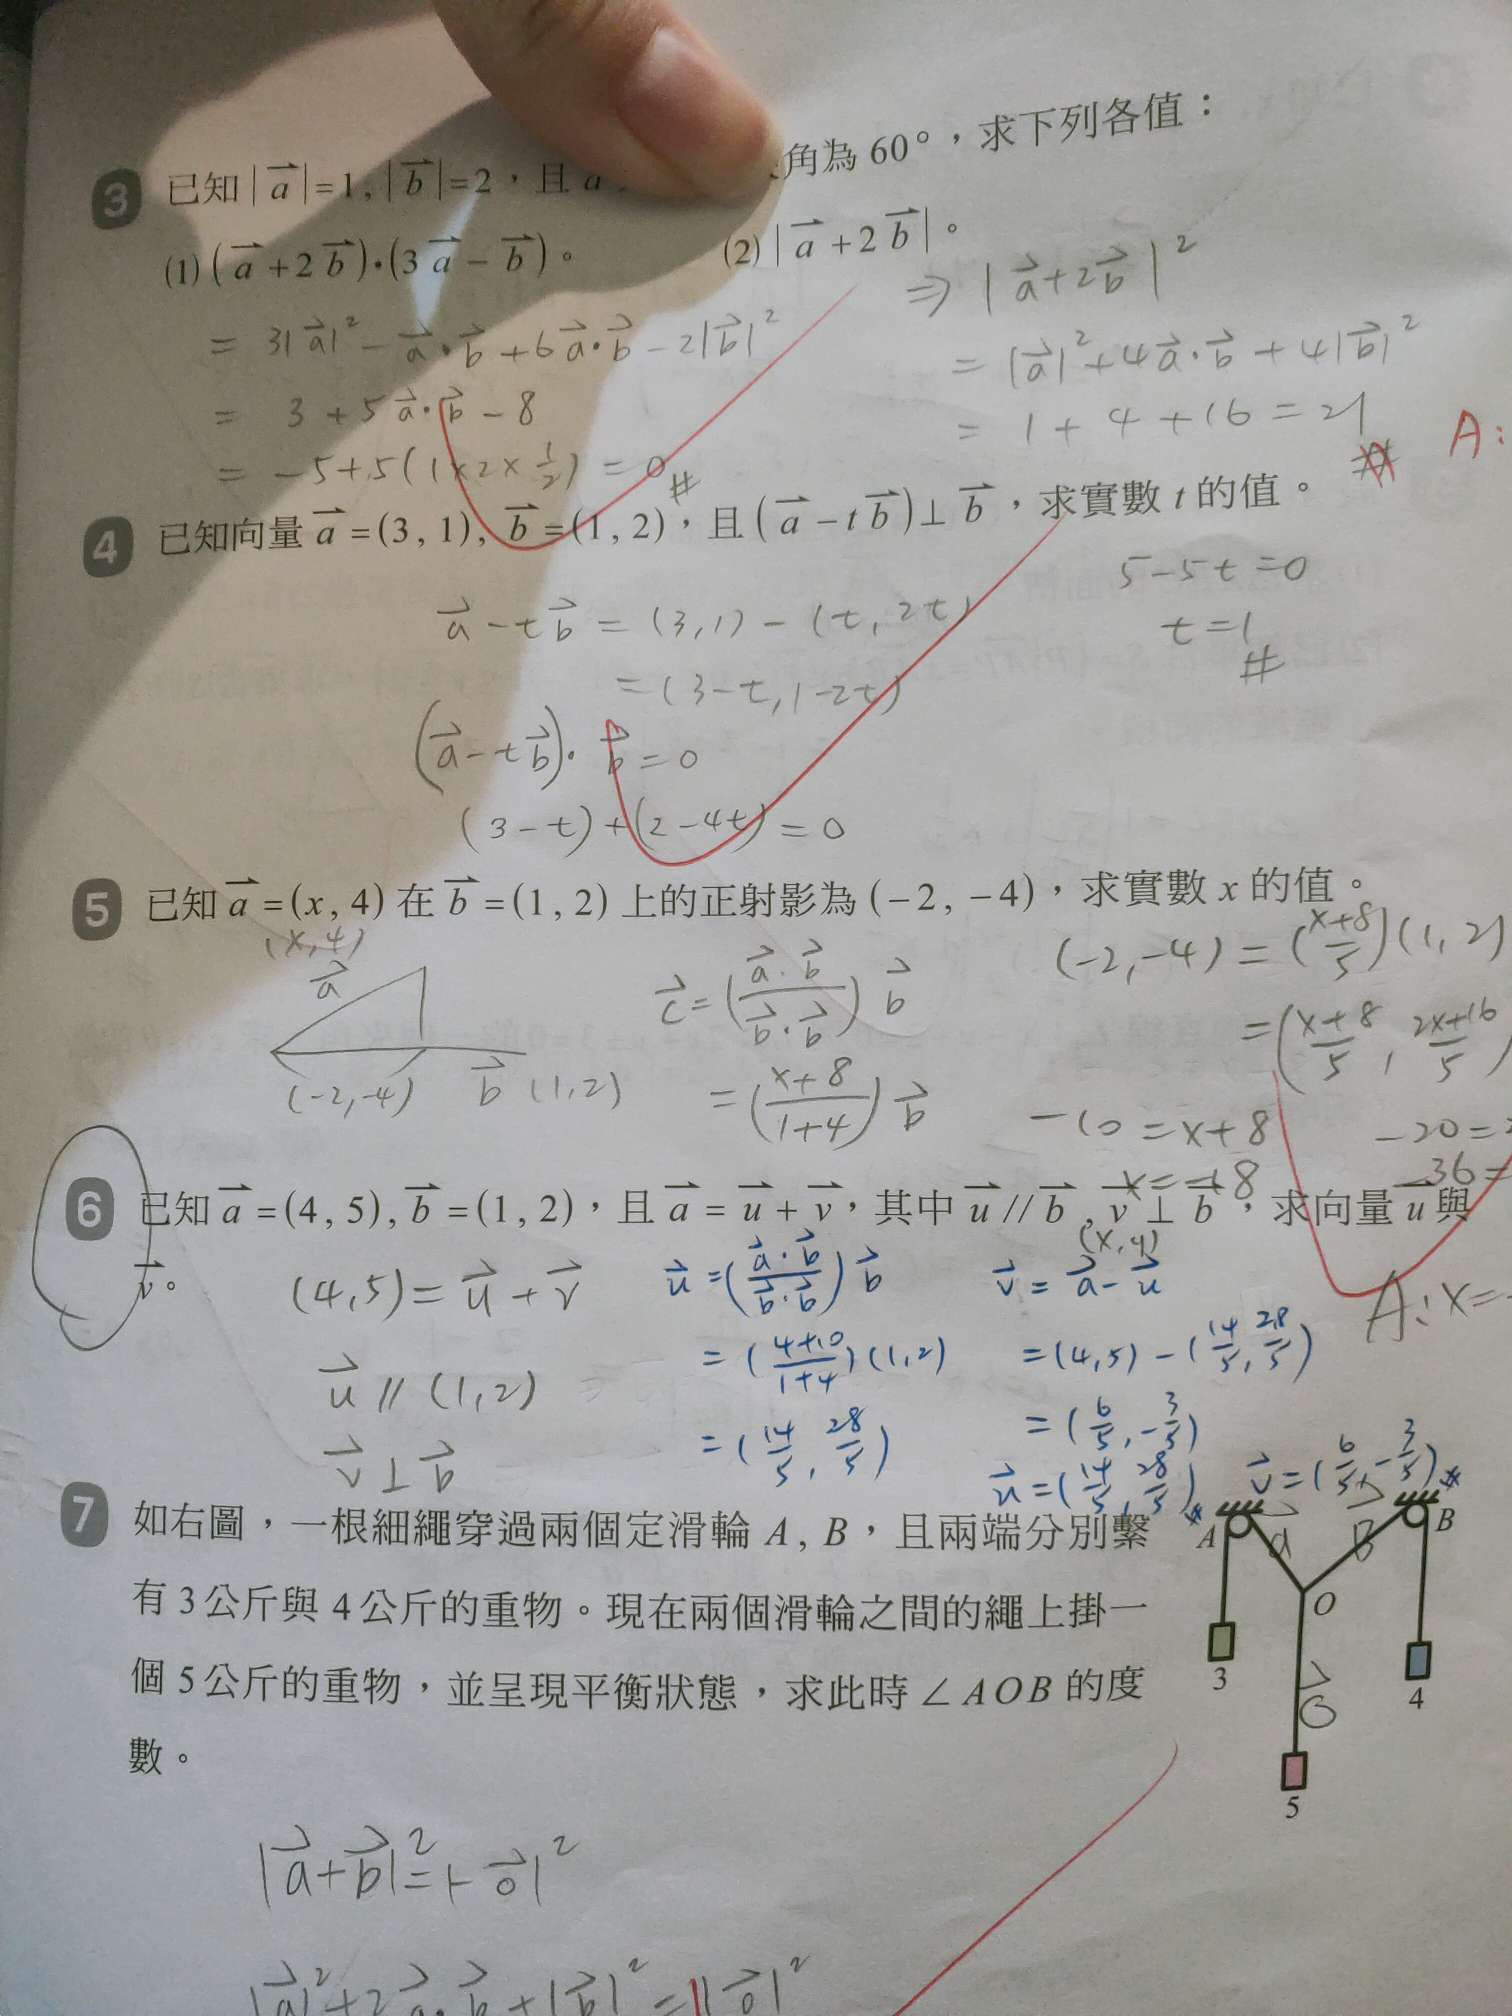 3 已知 |a⃗|=1, |b⃗|=2，且 a⃗ 角為 60°，求下列各值：
(1) (a⃗+2b⃗)•(3a⃗−b⃗)。 (2) |a⃗+2b⃗|。
⇒ |a⃗+2b⃗|²
= 3|a⃗|²−a⃗•b⃗+6a⃗•b⃗−2|b⃗|²
= |a⃗|²+4a⃗•b⃗+4|b⃗|²
= 3+5a⃗•b⃗−8
= 1+4+16=21
= −5+5(1×2×1/2)=0 #
A:
4 已知向量 a⃗=(3, 1), b⃗=(1, 2)，且 (a⃗−tb⃗)⊥b⃗，求實數 t 的值。
a⃗−tb⃗ = (3,1)−(t,2t)
= (3−t,1−2t)
(a⃗−tb⃗)•b⃗=0
(3−t)+(2−4t)=0
5−5t=0
t=1 #
5 已知 a⃗=(x, 4) 在 b⃗=(1, 2) 上的正射影為 (−2, −4)，求實數 x 的值。
(x,4)
a⃗
(−2,−4) b⃗ (1,2)
c⃗=(a⃗•b⃗/b⃗•b⃗)b⃗
=(x+8/1+4)b⃗
(−2,−4)=(x+8/5)(1,2)
=(x+8/5, 2x+16/5)
−10=x+8
x=−18
−20=
−36=
A:x=
6 已知 a⃗=(4, 5), b⃗=(1, 2)，且 a⃗=u⃗+v⃗，其中 u⃗//b⃗, v⃗⊥b⃗，求向量 u⃗ 與
v⃗。
(x,y)
(4,5)=u⃗+v⃗
u⃗//(1,2)
v⃗⊥b⃗
u⃗=(a⃗•b⃗/b⃗•b⃗)b⃗
=(4+10/1+4)(1,2)
=(14/5, 28/5)
v⃗=a⃗−u⃗
=(4,5)−(14/5, 28/5)
=(6/5, −3/5)
u⃗=(14/5, 28/5) v⃗=(6/5, −3/5)
7 如右圖，一根細繩穿過兩個定滑輪 A, B，且兩端分別繫
有 3 公斤與 4 公斤的重物。現在兩個滑輪之間的繩上掛一
個 5 公斤的重物，並呈現平衡狀態，求此時 ∠AOB 的度
數。
A a⃗ b⃗ B
O
3 o⃗ 4
5
|a⃗+b⃗|²=|−o⃗|²
|a⃗|²+2a⃗•b⃗+|b⃗|²=|o⃗|²